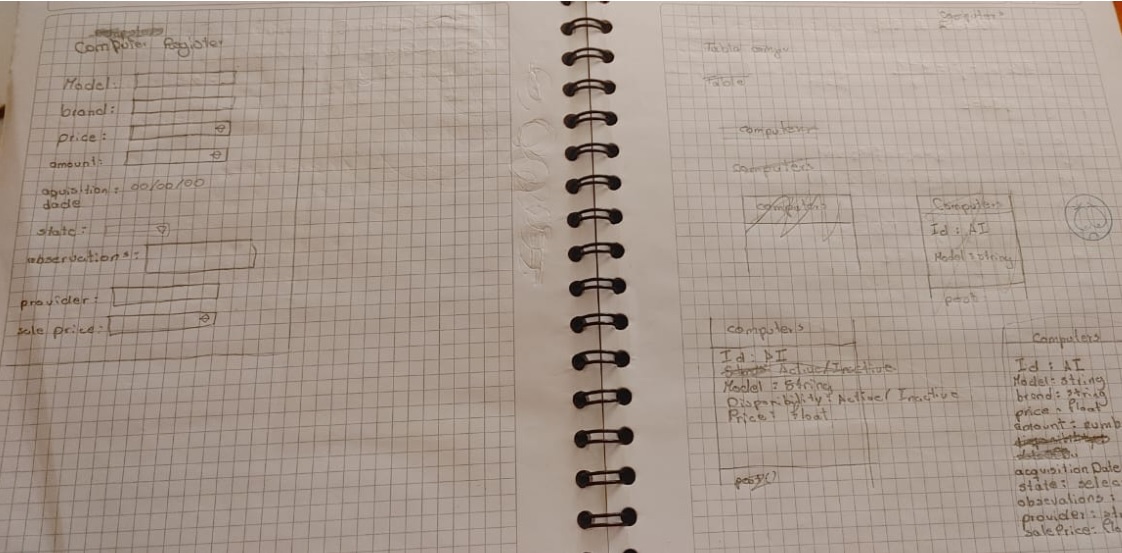 Computer Register
Model:
brand:
price:
amount:
aquisition: 00/00/00
dade
state:
observations:
provider:
sale price:
Computers
Tabla
Table
computers
computers
computers
Computers
Id : AI
Model: string
post
computers
Id : AI
Active/Inactive
Model : String
Disponibility : Active/ Inactive
Price : float
post()
Computers
Id : AI
Model: string
brand: string
price : float
amount : numb
acquisition Date
state : selec
obsevations :
provider : st
sale Price: flo